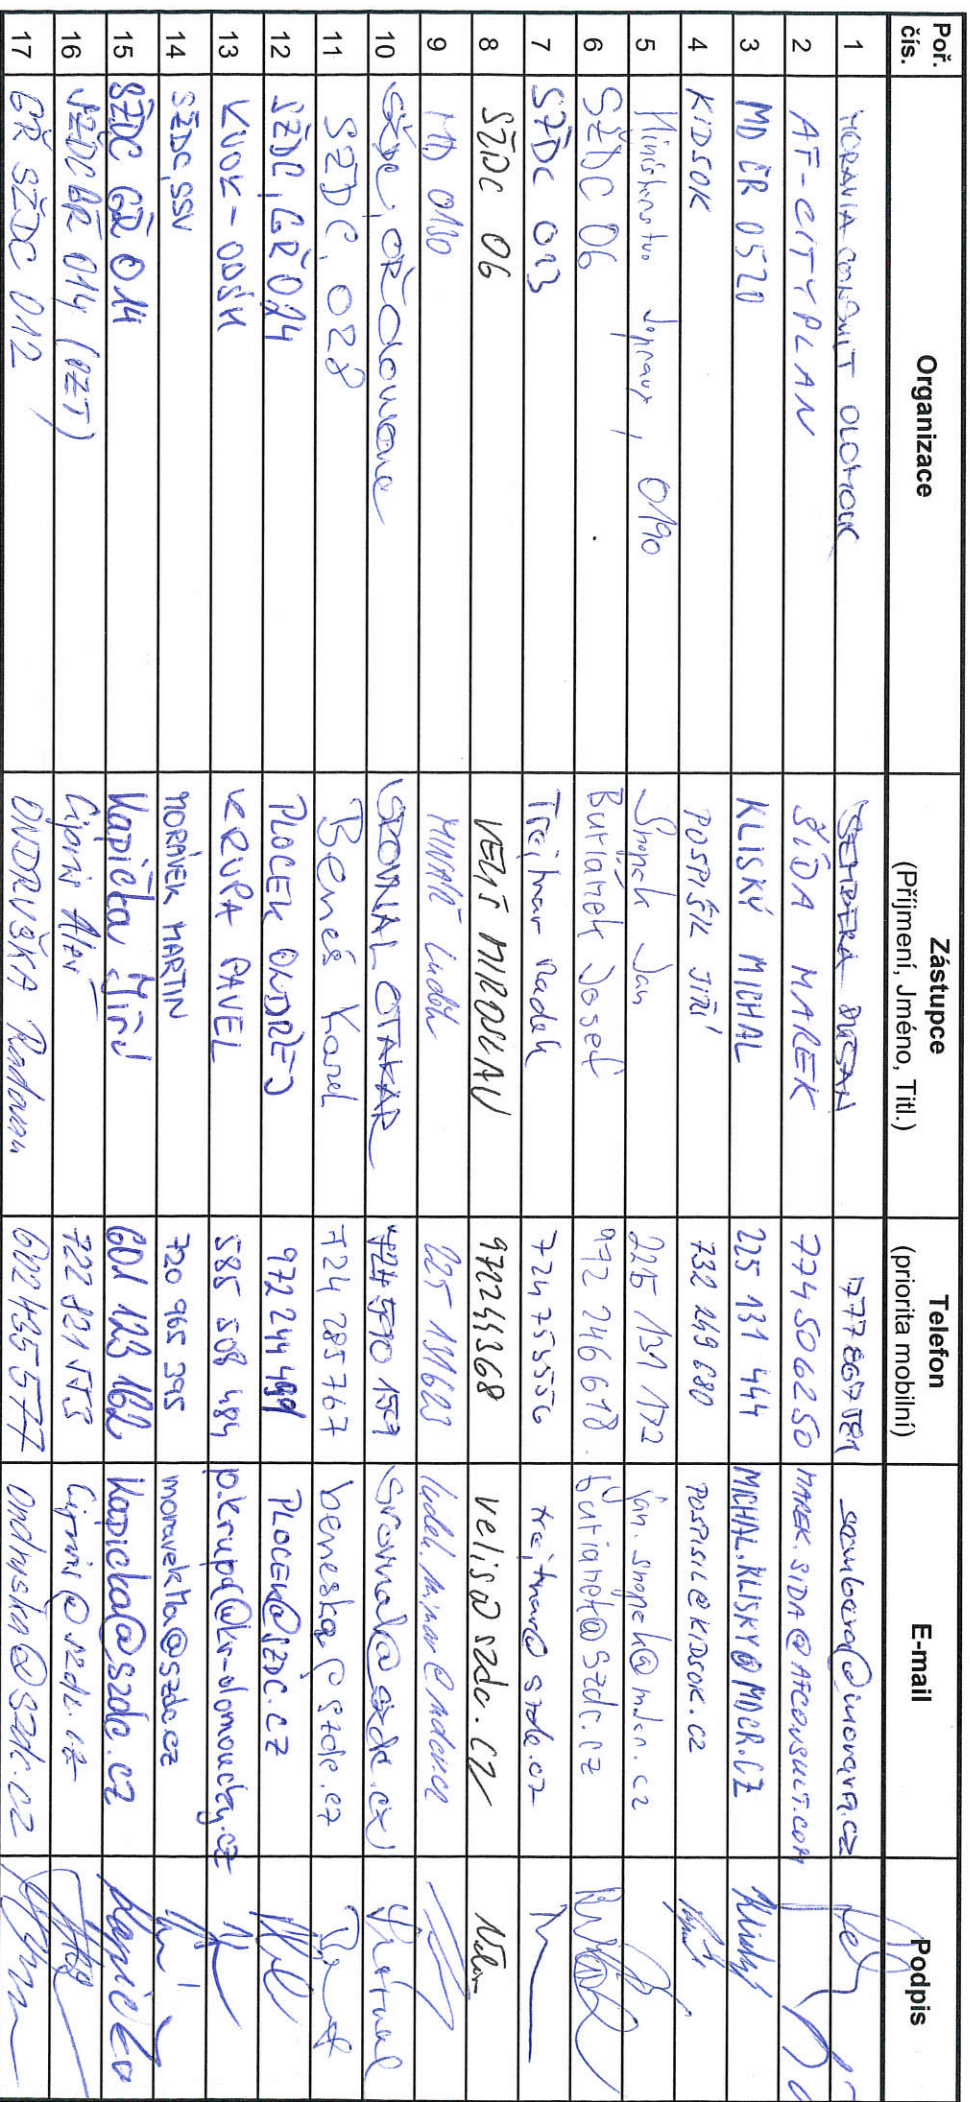 Poř. čís. Organizace Zástupce (Příjmení, Jméno, Titl.) Telefon (priorita mobilní) E-mail Podpis
1 MORAVIA CONSULT OLOMOUC DUŠAN
2 AF-CITYPLAN ŠÍDA MAREK 774506250 MAREK.SIDA@AFCONSULT.COM
3 MD ČR 0520 KLISKÝ MICHAL 225 131 444 MICHAL.KLISKY@MDCR.CZ
4 KIDSOK POSPÍŠIL JIŘÍ 732 249 680 POSPISIL@KIDSOK.CZ
5 Ministerstvo dopravy, 0190 Jan 225 131 172
6 SŽDC 06 Burianek Josef 972 246 618 burianek@szdc.cz
7 SŽDC 013 Trejtnar Radek 724 753556 trejtnar@szdc.cz
8 SŽDC 06 VELIŠ MIROSLAV 972244368 velis@szdc.cz
9 MD 0130 Luděk 225 131623
10 SŽDC, OŘ Olomouc OTAKAR
11 SŽDC, 028 Beneš Karel 724 285767 beneska@szdc.cz
12 SŽDC, GŘ 014 PLOCEK ONDŘEJ PLOCEK@SZDC.CZ
13 KÚOK - ODSH KRUPA PAVEL 585 508 484 p.krupa@kr-olomoucky.cz
14 SŽDC, SSV MORÁVEK MARTIN 720 965 395 moravekMa@szdc.cz
15 SŽDC GŘ 014 Kapička Jiří 601 123 162 Kapicka@szdc.cz Kapička
16 SŽDC GŘ 014 (OZT) 722 821 553
17 GŘ SŽDC 012 ONDRUŠKA Radovan 602 435 577 Ondruska@szdc.cz